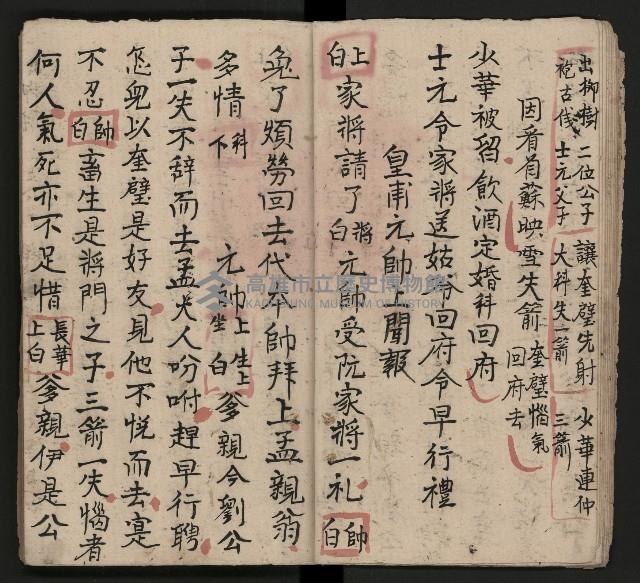 出柳樹 二位公子 讓奎璧先射 少華連仲
袍古伐 士元父子 大科失一箭 三箭
因看肖蘇映雪失箭 奎璧惱氣 回府去
少華被留飲酒定婚科回府
士元令家將送姑爷回府令早行禮
皇甫元帥 聞報
上白 家將請了 將白 元帥受阮家將一礼 帥白
免了煩勞回去代本帥拜上孟親翁
多情 科下 元帥 上坐 生上白 爹親今劉公
子一失不辞而去孟大人吩咐趕早行聘
怎兒以奎璧是好友見他不悅而去寔
不忍 帥白 畜生是將門之子三箭一失惱者
何人氣死亦不足惜 長華上白 爹親伊是公
高雄市立歷史博物館
KAOHSIUNG MUSEUM OF HISTORY